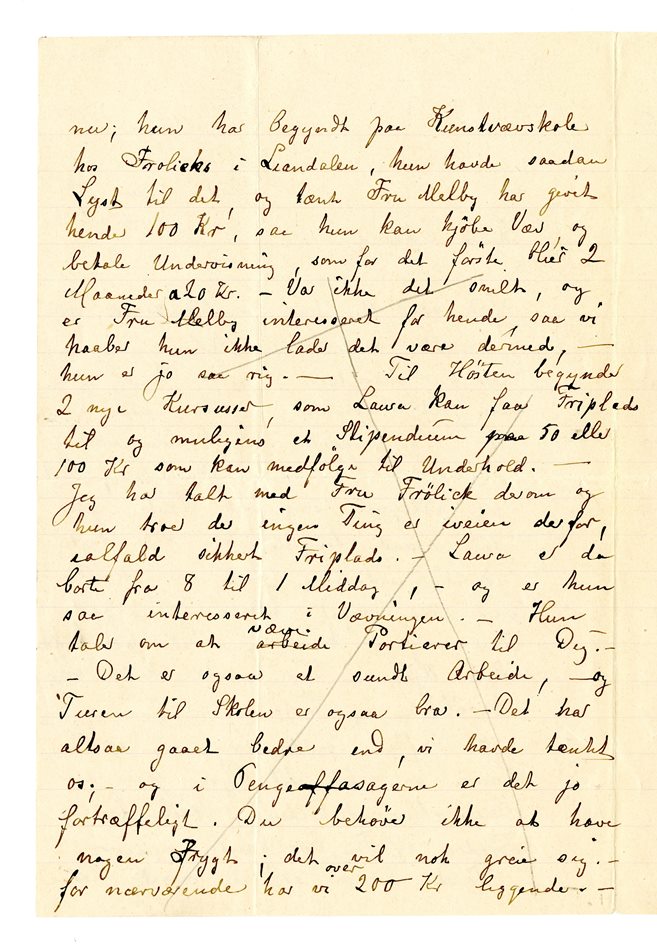 nu; hun har begyndt paa Kunstvævskole
hos Frølicks i Liandalen, hun havde saadan
Lyst til det, og tænk Fru Melby har givet
hende 100 Kr, saa hun kan kjöbe Væv, og
betale Undervisning, som for det förste blir 2
Maaneder a 20 Kr. – Var ikke det snilt, og
er Fru Melby interesseret for hende, saa vi
haaber hun ikke lader det være dermed, –
hun er jo saa rig. – Til Hösten begynder
2 nye Kursusser, som Lawra kan faa Friplads
til og muligens et Stipendium paa 50 eller
100 Kr som kan medfölge til Underhold. –
Jeg har talt med Fru Frölick derom og
hun troer der ingen Ting er iveien derfor,
ialfald sikkert Friplads. – Lawra er da
borte fra 8 til 1 Middag, – og er hun
saa interesseret i Vævningen. – Hun
taler om at væve
arbeide Portierer til Dig. –
– Det er ogsaa et sundt Arbeide, – og
Turen til Skolen er ogsaa bra. – Det har
altsaa gaaet bedre end, vi havde tænkt
os; – og i Pengeaffasagerne er det jo
fortræffeligt. Du behöver ikke at have
nogen Frygt, det vil nok greie sig. –
for nærværende har vi over 200 Kr liggende. –